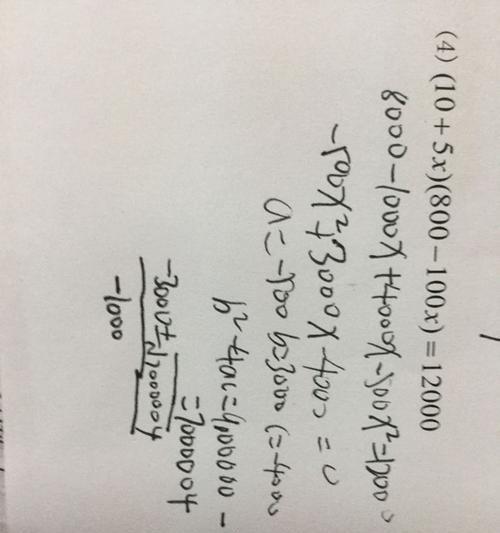 (4) (10+5x)(800-100x)=12000
8000-1000x+4000x-500x²=12000
-500x²+3000x-4000=0
a=-500 b=3000 c=-4000
b²-4ac=9,000000-
=7000004
-3000±√7000004
-1000